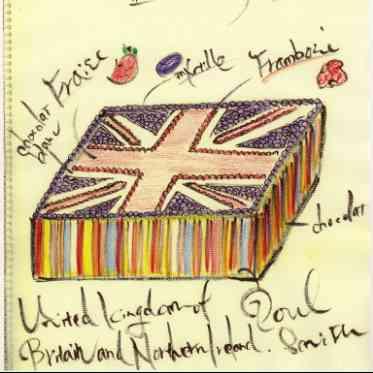 Fraise
myrtille
Framboise
chocolat
blanc
chocolat
United kingdom of
Britain and Northern Ireland.
Paul
Smith